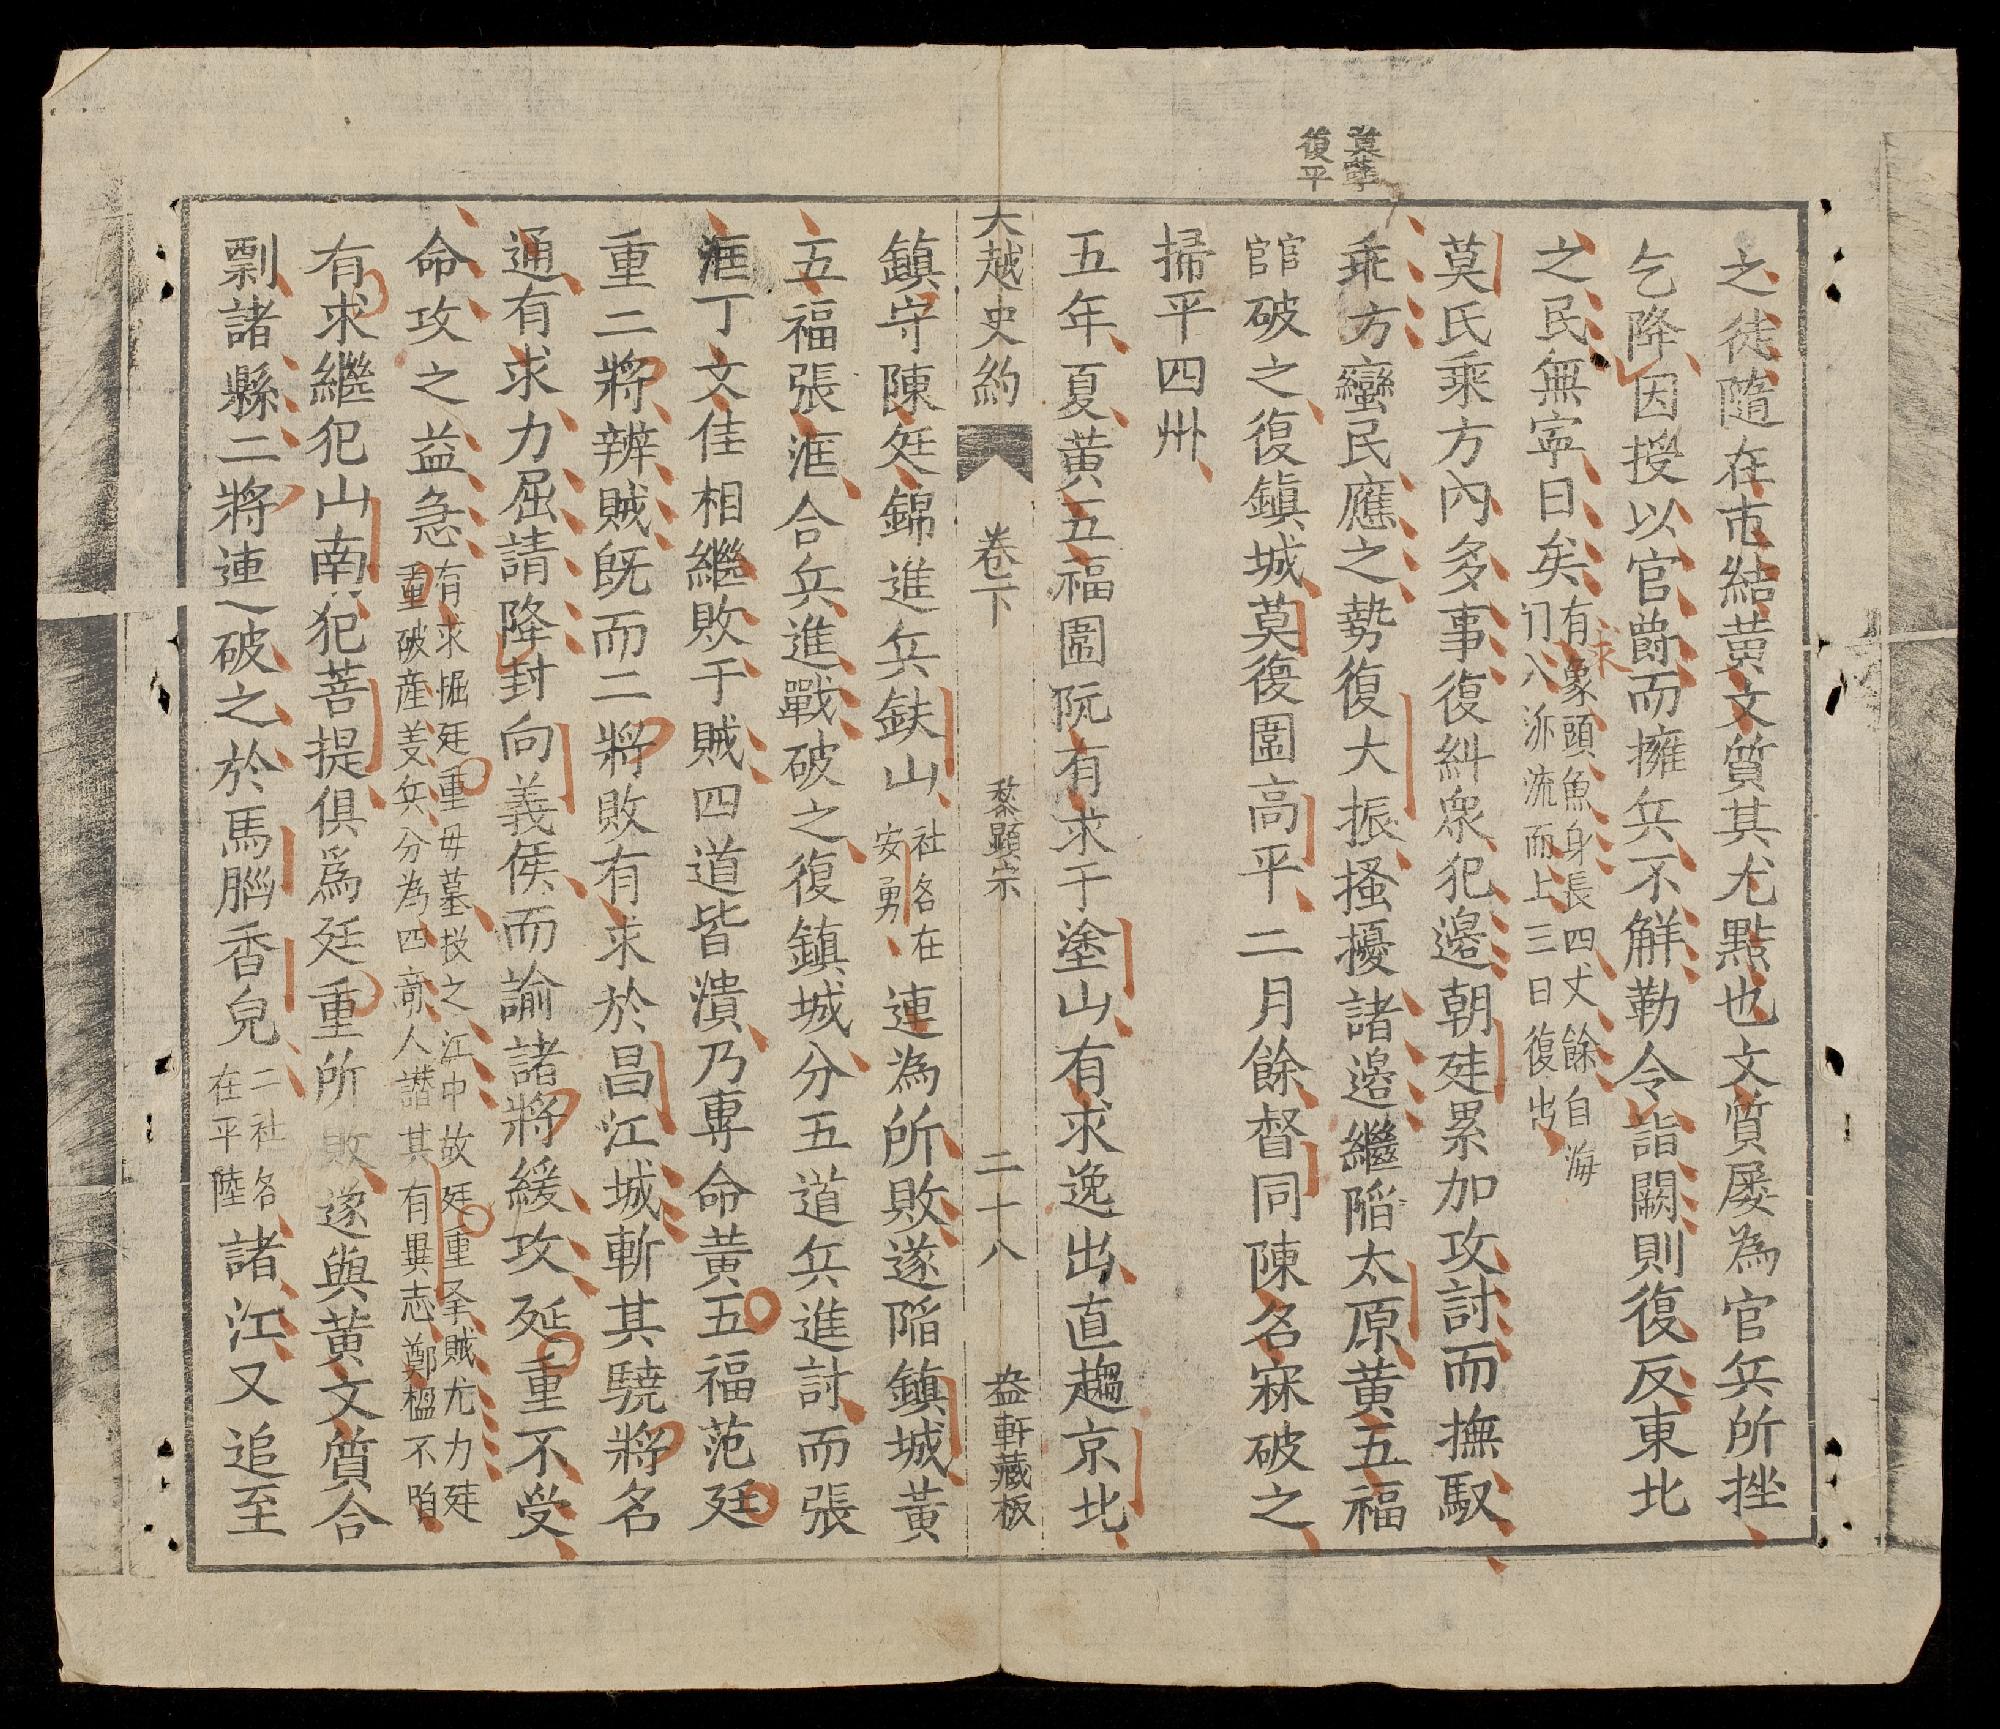 之徒隨在市結黃文質其尤黠也文質屡為官兵所挫
乞降因授以官爵而擁兵不觧勒令詣闕則復反東北
之民無寕日矣
有象頭魚身長四丈餘自海
求
入派流而上三日復出
莫氏乘方內多事復糾衆犯邉朝廷累加攻討而撫馭
乖方蠻民應之勢復大振搔擾諸邉繼陷太原黃五福
館破之復鎮城莫復圍高平二月餘督同陳名寀破之
掃平四州
莫寧
復平
五年夏黃五福圍阮有求于塗山有求逸出直趨京北
大越史約 卷下 黎顯宗 二十八 益軒藏板
鎮守陳廷錦進兵鈇山
社名在
安勇
連為所敗遂陷鎮城黃
五福張滙合兵進戰破之復鎮城分五道兵進討而張
滙丁文佳相継敗于賊四道皆潰乃專命黃五福范廷
重二將辨賊既而二將敗有求於昌江城斬其驍將名
通有求力屈請降封向義侯而諭諸將緩攻廷重不受
命攻之益急
有求掘廷重毋墓投之江中故廷重拿賊尤力廷
重破産羙兵分為四竒人譛其有異志鄭楹不咱
有求継犯山南犯菩提俱爲廷重所敗遂與黃文質合
剽諸縣二將連破之於馬腦香兒
二社名
在平陸
諸江又追至